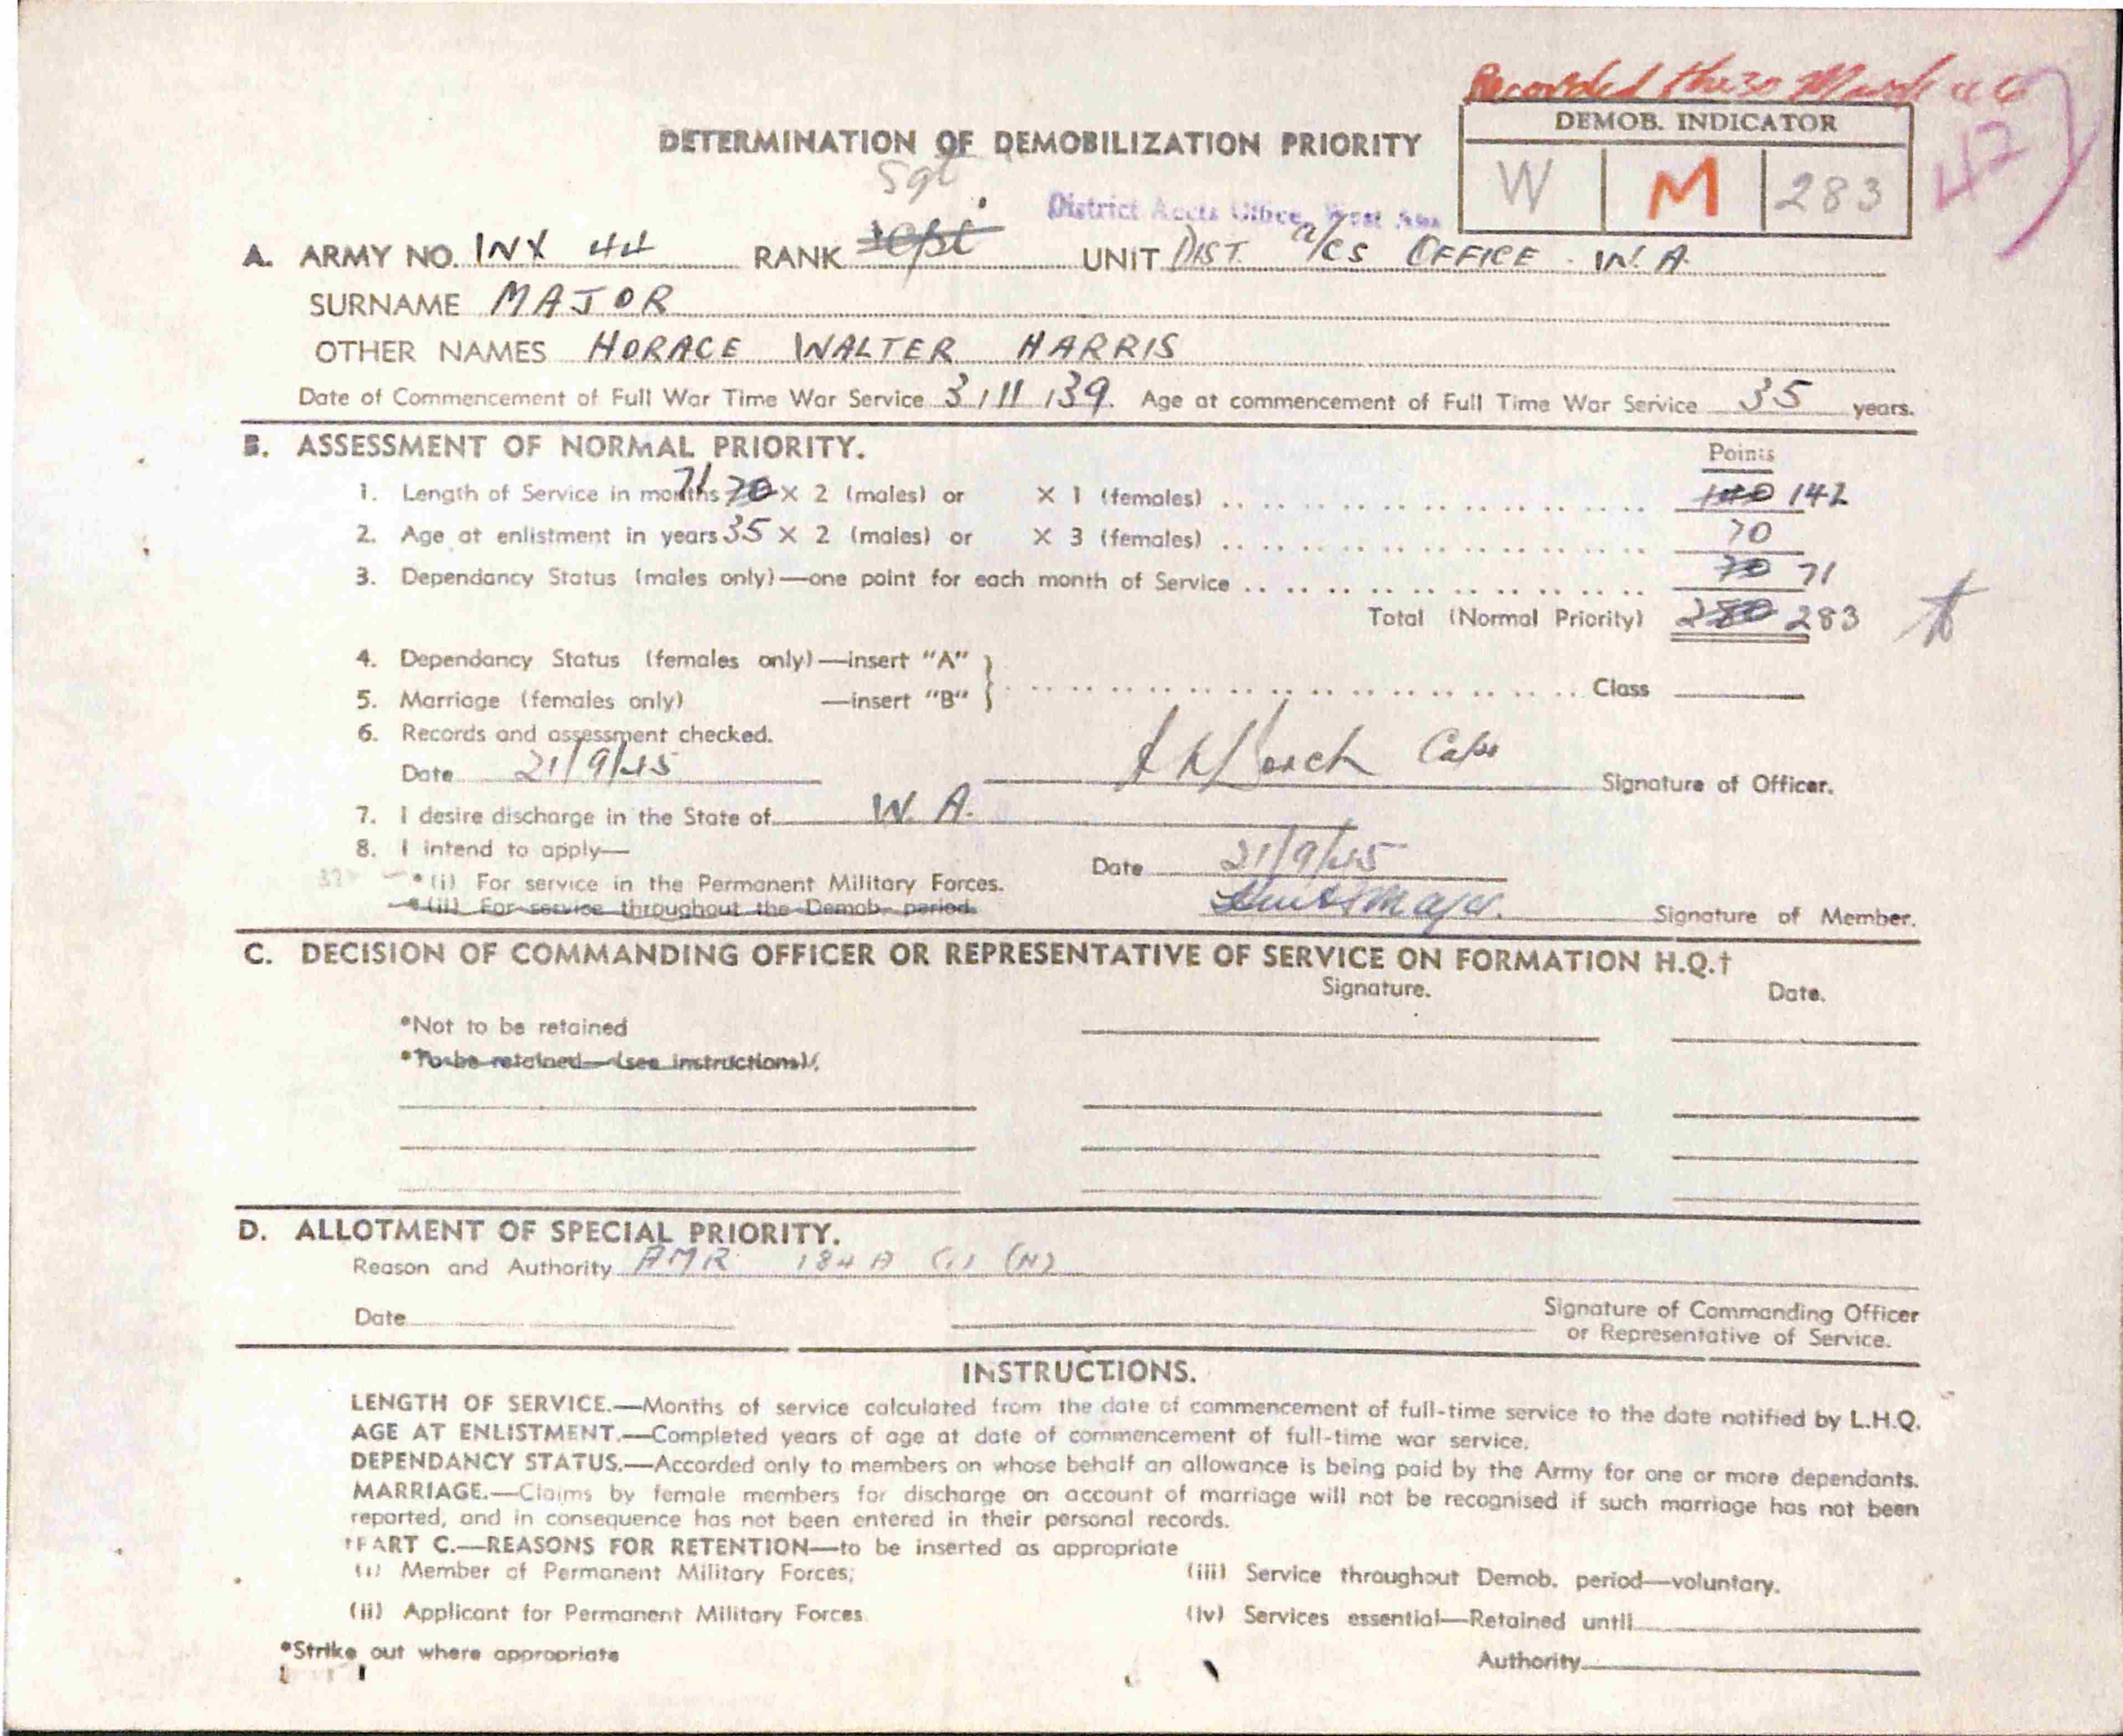 Recorded March
DETERMINATION OF DEMOBILIZATION PRIORITY
DEMOB. INDICATOR
W M 283
42
Sgt
District Accts Office, West Aus
A. ARMY NO. WX 44 RANK UNIT DIST. a/cs OFFICE. W.A.
SURNAME MAJOR
OTHER NAMES HORACE WALTER HARRIS
Date of Commencement of Full War Time War Service 3/11/39. Age at commencement of Full Time War Service 35 years.
B. ASSESSMENT OF NORMAL PRIORITY.
Points
1. Length of Service in months 71 70 × 2 (males) or × 1 (females) 140 142
2. Age at enlistment in years 35 × 2 (males) or × 3 (females) 70
3. Dependancy Status (males only)—one point for each month of Service 70 71
Total (Normal Priority) 280 283
4. Dependancy Status (females only)—insert "A"
5. Marriage (females only) —insert "B" Class
6. Records and assessment checked.
Date 21/9/45 Capt Signature of Officer.
7. I desire discharge in the State of W.A.
8. I intend to apply—
Date 21/9/45
*(i) For service in the Permanent Military Forces.
*(ii) For service throughout the Demob. period.
Major. Signature of Member.
C. DECISION OF COMMANDING OFFICER OR REPRESENTATIVE OF SERVICE ON FORMATION H.Q.†
Signature. Date.
*Not to be retained
*To be retained—(see instructions).
D. ALLOTMENT OF SPECIAL PRIORITY.
Reason and Authority AMR 184 A (1) (N)
Date
Signature of Commanding Officer
or Representative of Service.
INSTRUCTIONS.
LENGTH OF SERVICE.—Months of service calculated from the date of commencement of full-time service to the date notified by L.H.Q.
AGE AT ENLISTMENT.—Completed years of age at date of commencement of full-time war service.
DEPENDANCY STATUS.—Accorded only to members on whose behalf an allowance is being paid by the Army for one or more dependants.
MARRIAGE.—Claims by female members for discharge on account of marriage will not be recognised if such marriage has not been
reported, and in consequence has not been entered in their personal records.
†PART C.—REASONS FOR RETENTION—to be inserted as appropriate
(i) Member of Permanent Military Forces;
(iii) Service throughout Demob. period—voluntary.
(ii) Applicant for Permanent Military Forces
(iv) Services essential—Retained until
*Strike out where appropriate
Authority